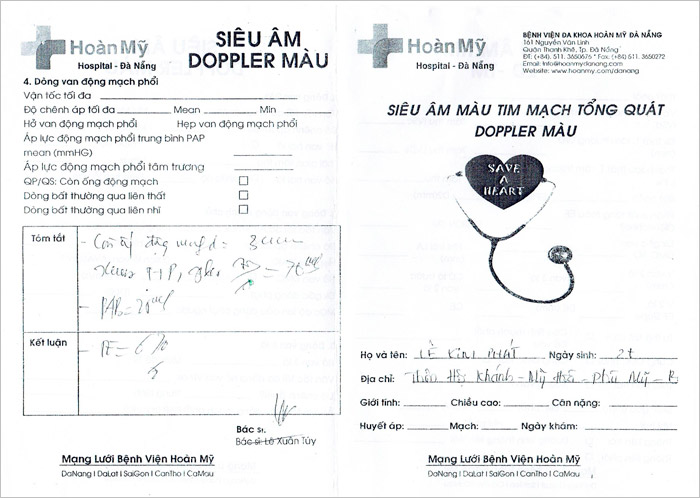 Hoàn Mỹ
Hospital - Đà Nẵng
SIÊU ÂM
DOPPLER MÀU
4. Dòng van động mạch phổi
Vận tốc tối đa
Độ chênh áp tối đa Mean Min
Hở van động mạch phổi Hẹp van động mạch phổi
Áp lực động mạch phổi trung bình PAP
mean (mmHG)
Áp lực động mạch phổi tâm trương
QP/QS: Còn ống động mạch
Dòng bất thường qua liên thất
Dòng bất thường qua liên nhĩ
Tóm tắt
Kết luận
Bác sĩ.
Bác sĩ Lê Xuân Túy
Mạng Lưới Bệnh Viện Hoàn Mỹ
DaNang I DaLat I SaiGon I CanTho I CaMau
Hoàn Mỹ
Hospital - Đà Nẵng
BỆNH VIỆN ĐA KHOA HOÀN MỸ ĐÀ NẴNG
161 Nguyễn Văn Linh
Quận Thanh Khê, Tp. Đà Nẵng
ĐT: (+84). 511. 3650676 * Fax. (+84) 511. 3650272
Email: info@hoanmydanang.com
Website: www.hoanmy.com/danang
SIÊU ÂM MÀU TIM MẠCH TỔNG QUÁT
DOPPLER MÀU
SAVE
A
HEART
Họ và tên: LÊ KIM PHÁT Ngày sinh: 2t
Địa chỉ: Thôn Hội Khánh - Mỹ Hòa - Phù Mỹ - B
Giới tính: Chiều cao: Cân nặng:
Huyết áp: Mạch: Ngày khám:
Mạng Lưới Bệnh Viện Hoàn Mỹ
DaNang I DaLat I SaiGon I CanTho I CaMau